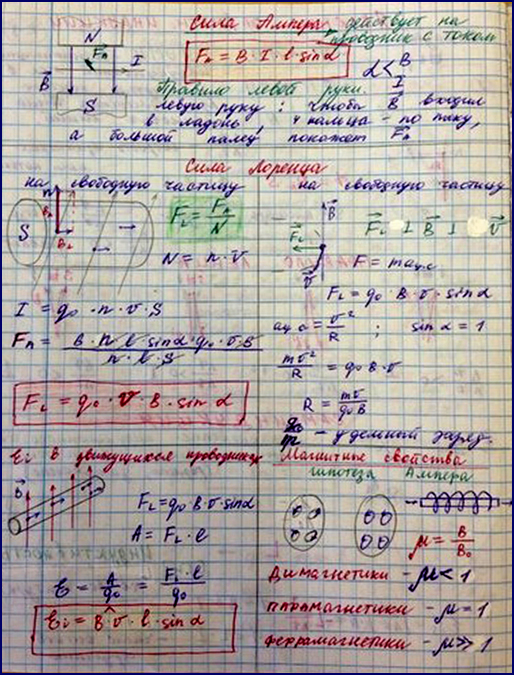 Сила Ампера действует на
проводник с током
N
Fₐ = B · I · l · sin α
α < B
I
Fₐ
I
B
S
Правило левой руки.
левую руку : чтобы B входил
в ладонь, 4 пальца – по току,
а большой палец покажет Fₐ
Сила Лоренца
на свободную частицу
S
Fл = Fₐ / N
N = n · V
I = q₀ · n · v · S
Fₐ = B · n · l · sin α · q₀ · v · S / n · l · S
Fл = q₀ · v · B · sin α
на свободную частицу
B
Fл
v
Fл ⊥ B ⊥ v
F = m aц.с
Fл = q₀ · B · v · sin α
aц.с = v² / R ; sin α = 1
mv² / R = q₀ B · v
R = mv / q₀B
q₀ / m – удельный заряд.
Ei в движущихся проводниках
B
Fл = q₀ · B · v · sin α
A = Fл · l
E = A / q₀ = Fл · l / q₀
Ei = B · v · l · sin α
Магнитные свойства
гипотеза Ампера
μ = B / B₀
Димагнетики – μ < 1
парамагнетики – μ = 1
ферромагнетики – μ >> 1